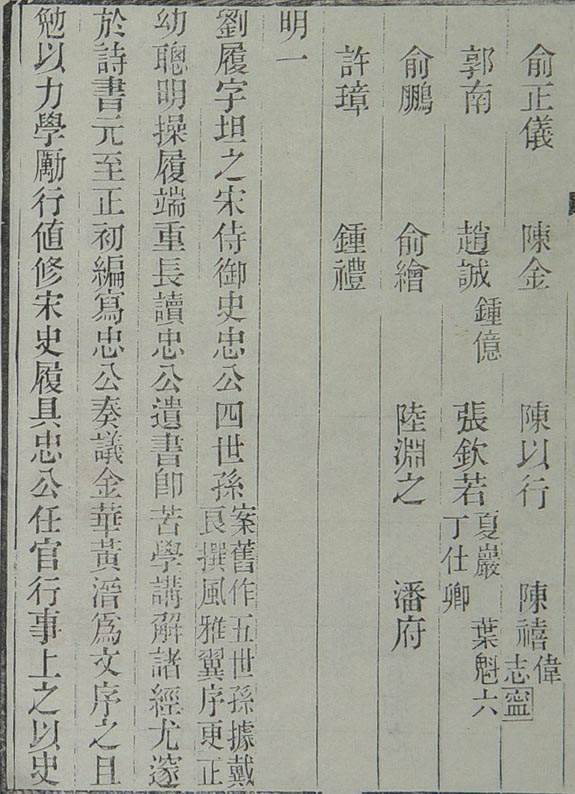 俞正儀 陳金 陳以行 陳禧 偉 志寍
郭南 趙誠 鍾億 張欽若 夏巖 丁仕卿 葉魁六
俞鵬 俞繪 陸淵之 潘府
許璋 鍾禮
明一
劉履字坦之宋侍御史忠公四世孫案舊作五世孫據戴良撰風雅翼序更正
幼聰明操履端重長讀忠公遺書卽苦學講解諸經尤邃
於詩書元至正初編寫忠公奏議金華黃溍爲文序之且
勉以力學勵行値修宋史履具忠公任官行事上之以史